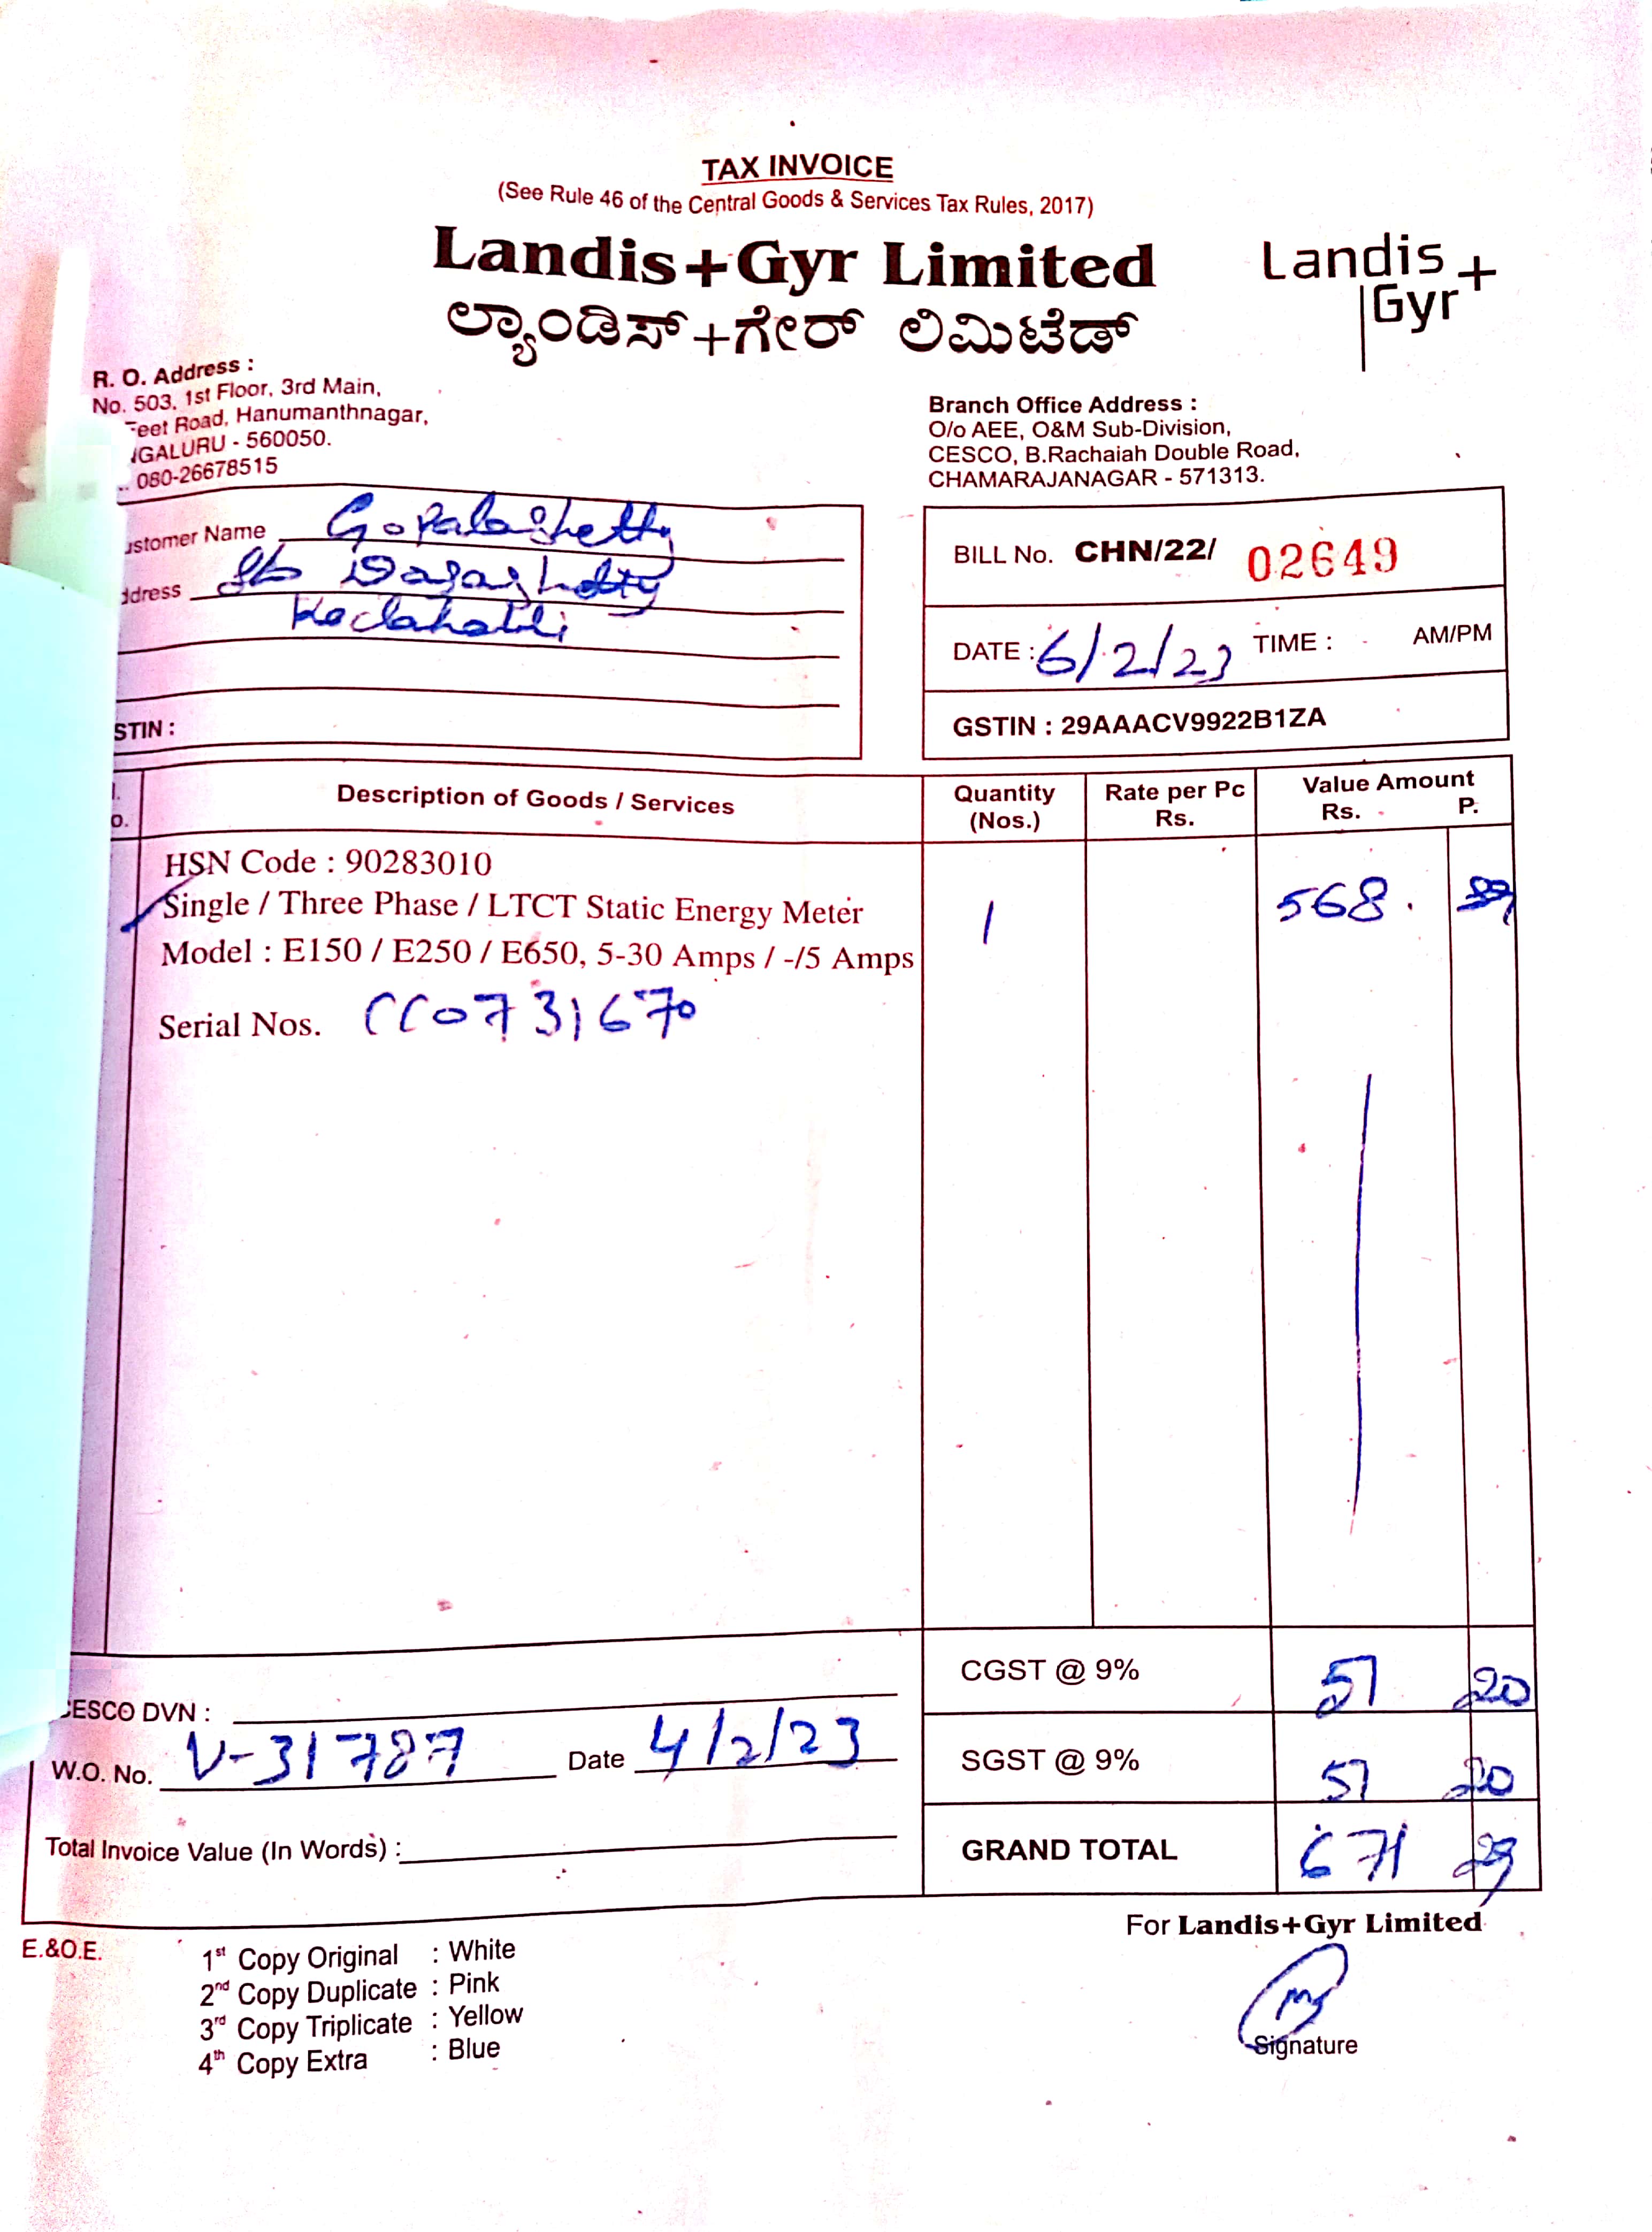 TAX INVOICE
(See Rule 46 of the Central Goods & Services Tax Rules, 2017)
Landis+Gyr Limited
ಲ್ಯಾಂಡಿಸ್+ಗೇರ್ ಲಿಮಿಟೆಡ್
Landis+
Gyr
R. O. Address :
No. 503, 1st Floor, 3rd Main,
Feet Road, Hanumanthnagar,
GALURU - 560050.
080-26678515
Branch Office Address :
O/o AEE, O&M Sub-Division,
CESCO, B.Rachaiah Double Road,
CHAMARAJANAGAR - 571313.
ustomer Name Gopalashetty
ddress S/o
STIN :
BILL No. CHN/22/ 02649
DATE : 6/2/23 TIME : AM/PM
GSTIN : 29AAACV9922B1ZA
Description of Goods / Services Quantity (Nos.) Rate per Pc Rs. Value Amount Rs. P.
HSN Code : 90283010
Single / Three Phase / LTCT Static Energy Meter 1 568.
Model : E150 / E250 / E650, 5-30 Amps / -/5 Amps
Serial Nos. CC0731670
CGST @ 9% 51 20
CESCO DVN :
W.O. No. V-31787 Date 4/2/23
SGST @ 9% 51 20
Total Invoice Value (In Words) :
GRAND TOTAL 671 29
For Landis+Gyr Limited
E.&O.E.
1st Copy Original : White
2nd Copy Duplicate : Pink
3rd Copy Triplicate : Yellow
4th Copy Extra : Blue
Signature